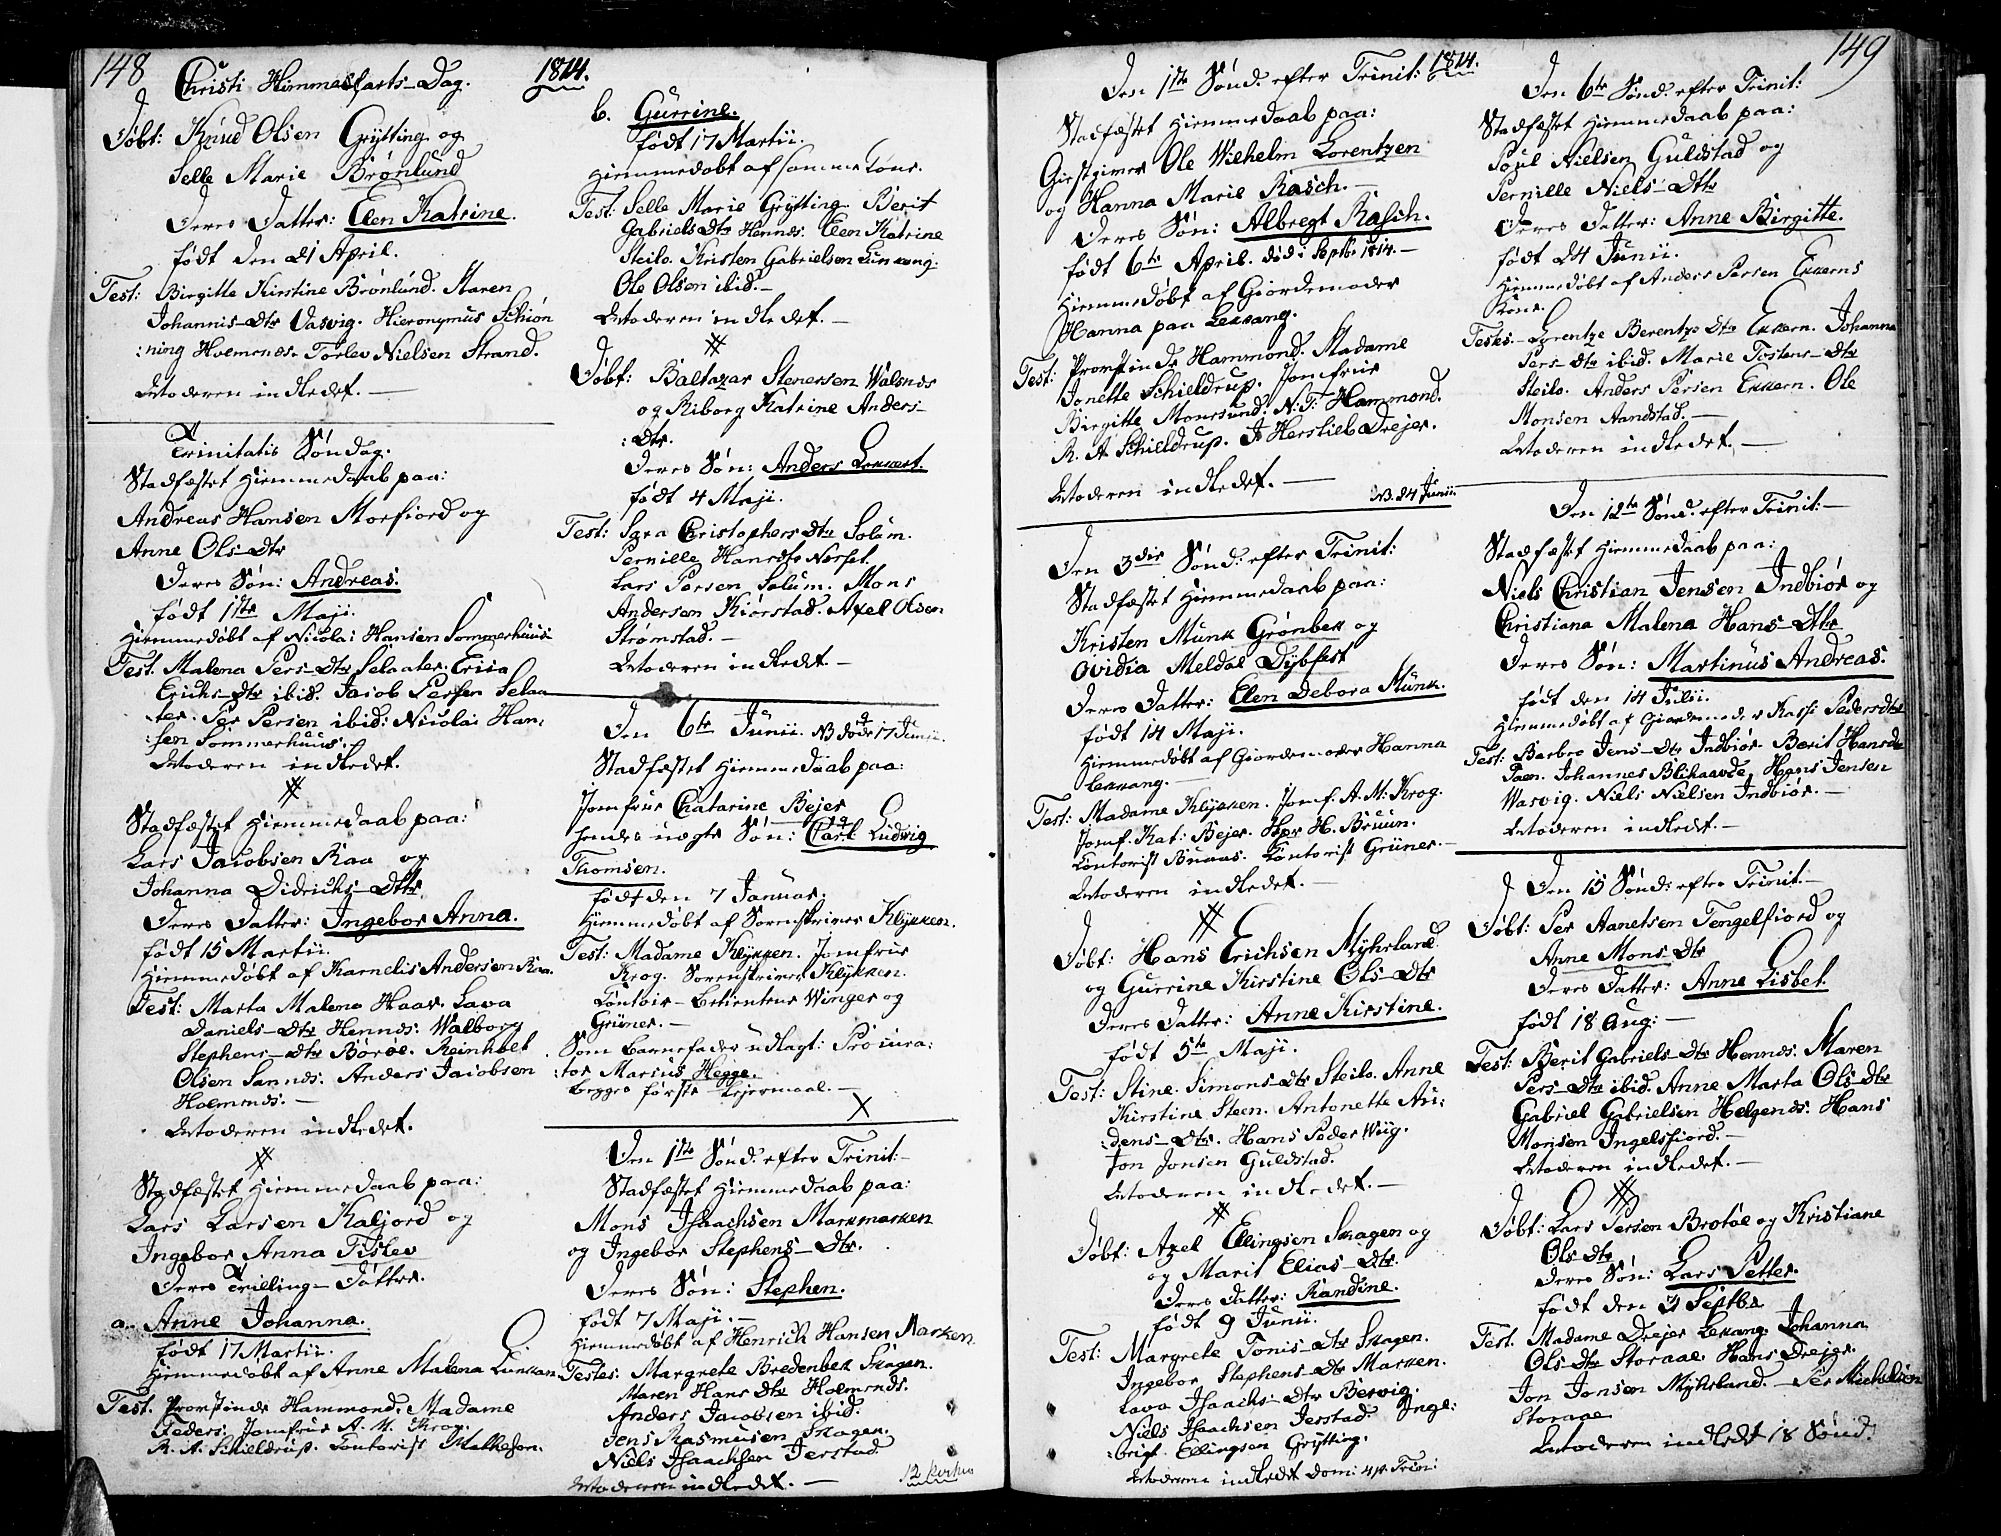 148
Christi Himmelfarts-Dag.
Døbt: Knud Olsen Grytting og
Selle Marie Brønlund
Deres Datter: Elen Katrine.
født den 21 April.
Test: Birgitte Kirstine Brønlund. Maren
Johannis-Dtr Vasvig. Hieronymus Schiøn
:ning Holmsnes. Torlev Nielsen Strand.
Moderen indledet.
Trinitatis Søndag.
Stadfæstet Hiemmedaab paa:
Andreas Hansen Morfiord og
Anne Ols-Dtr
Deres Søn: Andreas.
født 1ste Maji.
Hiemmedøbt af Nicolai Hansen Sommerhuus
Test. Malena Pers-Dtr Selaater.
Erichs-Dtr ibid. Jacob Persen Selaa
ter. Per Persen ibid: Nicolai Han:
:sen Sommerhuus.
Moderen indledet.
Stadfæstet Hiemmedaab paa:
Lars Jacobsen Raa og
Johanna Didrichs-Dtr.
Deres Datter: Ingebor Anna.
født 15 Martii.
Hiemmedøbt af Karnelis Andersen Raa.
Test: Marta Malena Haar. Lava
Daniels-Dtr Hennes. Walborg
Stephens-Dtr Børøe. Reinholt
Olsen Sannes. Anders Jacobsen
Holmsnes.
Moderen indledet.
Stadfæstet Hiemmedaab paa:
Lars Larsen Kaljord og
Ingebor Anna Tislev
Deres Tvilling-Døtter.
a. Anne Johanna.
født 17 Martii.
Hiemmedøbt af Anne Malena Lunkan
Test. Provstinde Hammond. Madame
Feders. Jomfrue A. M. Krog.
R. A. Schieldrup. Contorist
1814.
b. Gurrine.
født 17 Martii.
Hiemmedøbt af samme Kone.
Test: Selle Marie Grytting. Berit
Gabriels Dtr Hennes. Elen Katrine
Steilo. Kristen Gabrielsen Lunkang.
Ole Olsen ibid.
Moderen indledet.
Døbt: Baltazar Stenersen Walsnes
og Riborg Katrine Anders-
:Dtr.
Deres Søn: Anders Lokkert.
født 4 Maji.
Test: Sara Christophers Dtr Solum.
Pernille Hansdtr
Lars Persen Solum. Mons
Andersen Kiørstad. Axel Olsen
Strømstad.
Moderen indledet.
Den 6te Junii. NB døde 17 Junii.
Stadfæstet Hiemmedaab paa:
Jomfrue Chatarine Bejer
hendes uægte Søn: Carl Ludvig
Thomsen.
født den 7 Januar.
Hiemmedøbt af Sorenskriver Klykken.
Test: Madame Klykken. Jomfrue
Krog. Sorenskriver Klykken.
Contoir-Betienterne Winger og
Grüner.
Som Barnefader udlagt: Procura:
:tor Marius Hegge.
begges første Leiermaal.
Den 1ste Sønd. efter Trinit:
Stadfæstet Hiemmedaab paa:
Mons Isaachsen Markmarken
og Ingebor Stephens-Dtr.
Deres Søn: Stephen.
født 7 Maji.
Hiemmedøbt af Henrich Hansen Marken
Testes: Margrete Bredenbek Skagen.
Maren Hans Dtr Holmsnes.
Anders Jacobsen ibid.
Jens Rasmusen Skagen.
Niels Isaachsen Jerstad
Moderen indledet.
1814.
Den 1ste Sønd. efter Trinit:
Stadfæstet Hiemmedaab paa:
Giestgiver Ole Wilhelm Lorentzen
og Hanna Marie Rasch.
Deres Søn: Albregt Rasch.
født 6te April. død i Septbr. 1814.
Hiemmedøbt af Giordemoder
Hanna paa Lekkang.
Test: Provstinde Hammond. Madame
Jonette Schieldrup. Jomfrue
Birgitte Monrsund. N: T: Hammond.
R. A. Schieldrup. J. Herslieb Drejer.
Moderen indledet.
NB. 24 Junii.
Den 3die Sønd. efter Trinit:
Stadfæstet Hiemmedaab paa:
Kristen Munk Grønbek og
Ovidia Meldal Dybfest
Deres Datter: Elen Debora Munk.
født 14 Maji.
Hiemmedøbt af Giordemoder Hanna
Lekkang.
Test: Madame Klykken. Jomf. A. M: Krog.
Jomf. Kat: Bejer. Hr H. Bruun.
Contorist Contorist Grüner.
Moderen indledet.
Døbt: Hans Erichsen Myhrland
og Gurrine Kirstine Ols-Dtr
Deres Datter: Anne Kirstine.
født 5te Maji.
Test: Stine Simons-Dtr Steilo. Anne
Kirstine Steen. Antonette Au:
:dens-Dtr. Hans Peder Wiig.
Jon Jonsen Guldstad.
Moderen indledet.
Døbt: Axel Ellingsen Skagen og
og Marit Elias-Dtr.
Deres Datter: Randine.
født 9 Junii.
Test: Margrete Tonis-Dtr Skagen.
Ingebor Stephens-Dtr Marken.
Lava Isaachs-Dtr Bervig.
Niels Isaachsen Jerstad. Inge:
:brigt Ellingsen Grytting.
Moderen indledet Dom: 4 p. Trin:
149
Den 6te Sønd. efter Trinit:
Stadfæstet Hiemmedaab paa:
Poul Nielsen Guldstad og
Pernille Niels-Dtr
Deres Datter: Anne Birgitte.
født 24 Junii.
Hiemmedøbt af Anders Persen Ekkerns
Kone.
Testes. Lorentze Berentz Dtr Ekkern. Johanna
Pers-Dtr ibid. Marie Tostens-Dtr
Steilo. Anders Persen Ekkern. Ole
Monsen Aandstad.
Moderen indledet.
Den 12te Sønd: efter Trinit:
Stadfæstet Hiemmedaab paa:
Niels Christian Jensen Indbiør og
Christiana Malena Hans-Dtr
Deres Søn: Martinus Andreas.
født den 14 Julii.
Hiemmedøbt af Giordemoder Kassi Pedersdtr
Test: Barbro Jens-Dtr Indbiør. Berit Hansdtr
Johannes Blikaavde. Hans Jensen
Wasvig. Niels Nielsen Indbiør.
Moderen indledet.
Den 15 Sønd: efter Trinit:
Døbt: Per Aanetsen Tengelfiord og
Anne Mons-Dtr
Deres Datter: Anne Lisbet.
født 18 Aug:
Test: Berit Gabriels-Dtr Hennes. Maren
Pers-Dtr ibid. Anne Marta Ols-Dtr
Gabriel Gabrielsen Helgenes. Hans
Monsen Ingelsfiord.
Moderen indledet.
Døbt: Lars Persen Brotøe og Kristiane
Ols Dtr
Deres Søn: Lars Petter.
født den 21 Septbr
Test. Madame Drejer Lekang. Johanna
Ols-Dtr Storaae. Hans Drejer.
Jon Jonsen Myhrland. Per Michelsen
Storaae
Moderen indledt 18 Sønd.